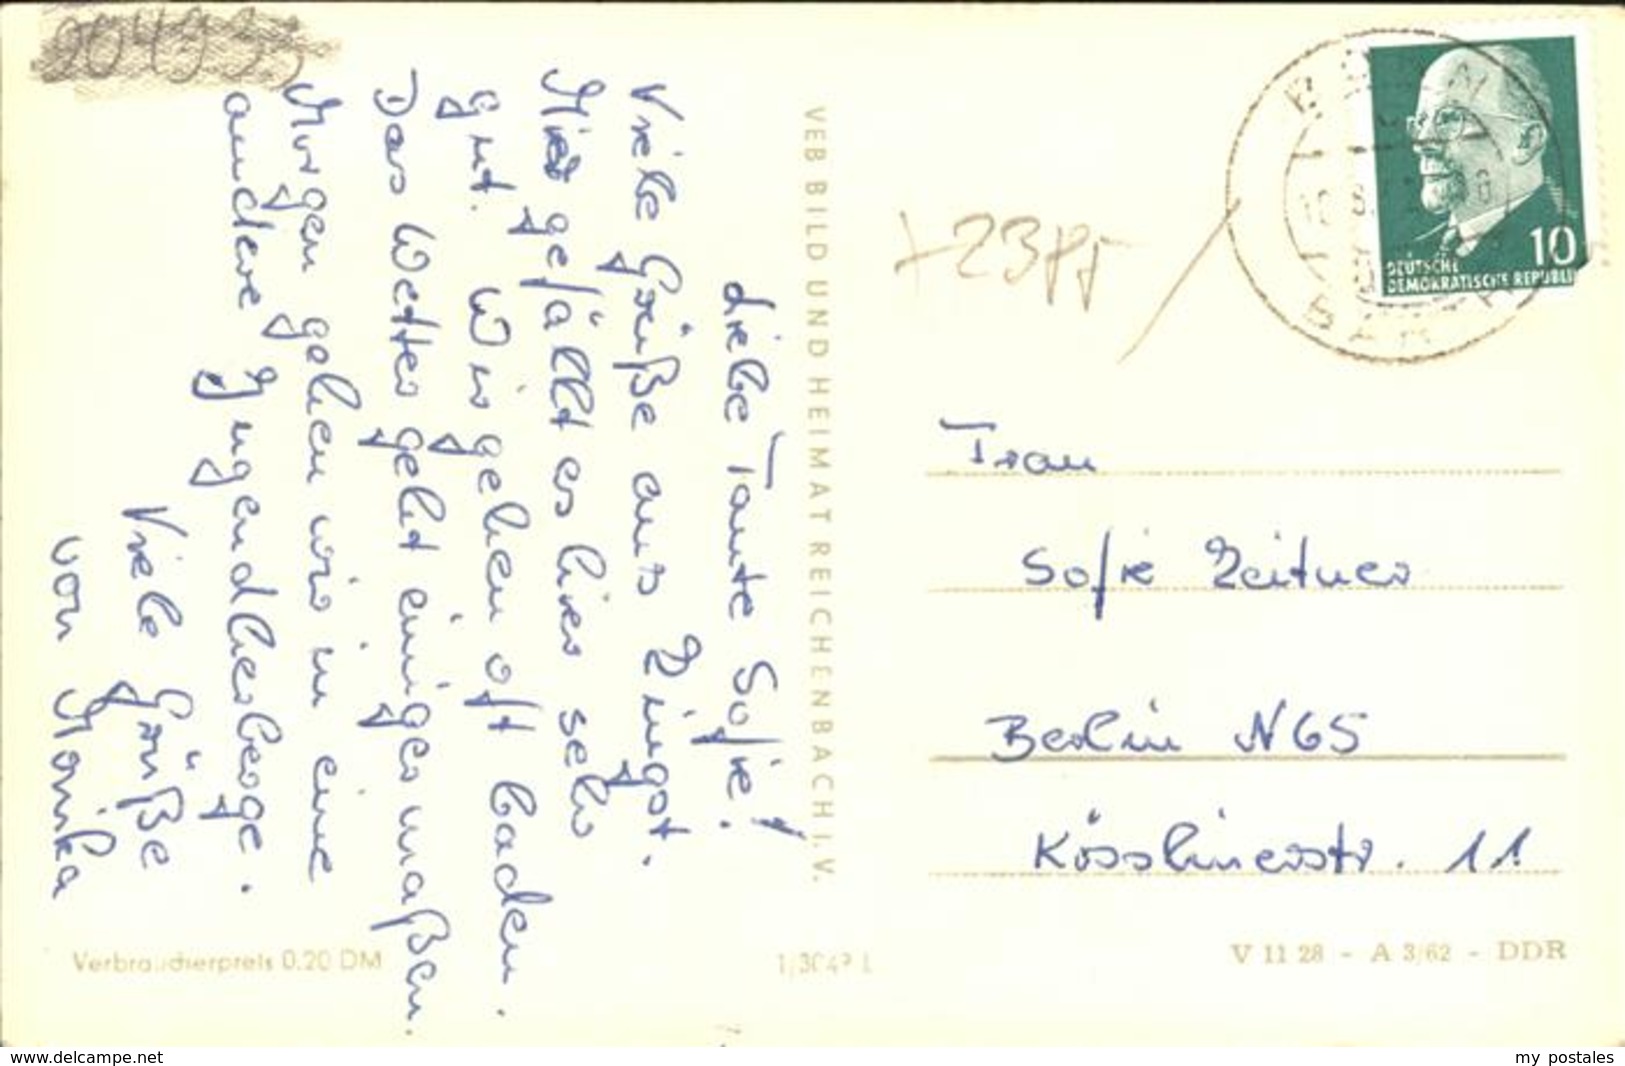 20499
Liebe Tante Sofie!
Viele Grüße aus Zingst.
Mir gefällt es hier sehr
gut. Wir gehen oft baden.
Das Wetter geht einigermaßen.
Morgen gehen wir in eine
andere Jugendherberge.
Viele Grüße
von Monika
VEB BILD UND HEIMAT REICHENBACH I. V.
10
DEUTSCHE
DEMOKRATISCHE REPUBLIK
+23 Pf
Frau
Sofie Zeitner
Berlin N65
Kösslinerstr. 11
Verbraucherpreis 0.20 DM
V 11 28 - A 3/62 - DDR
www.delcampe.net
my postales